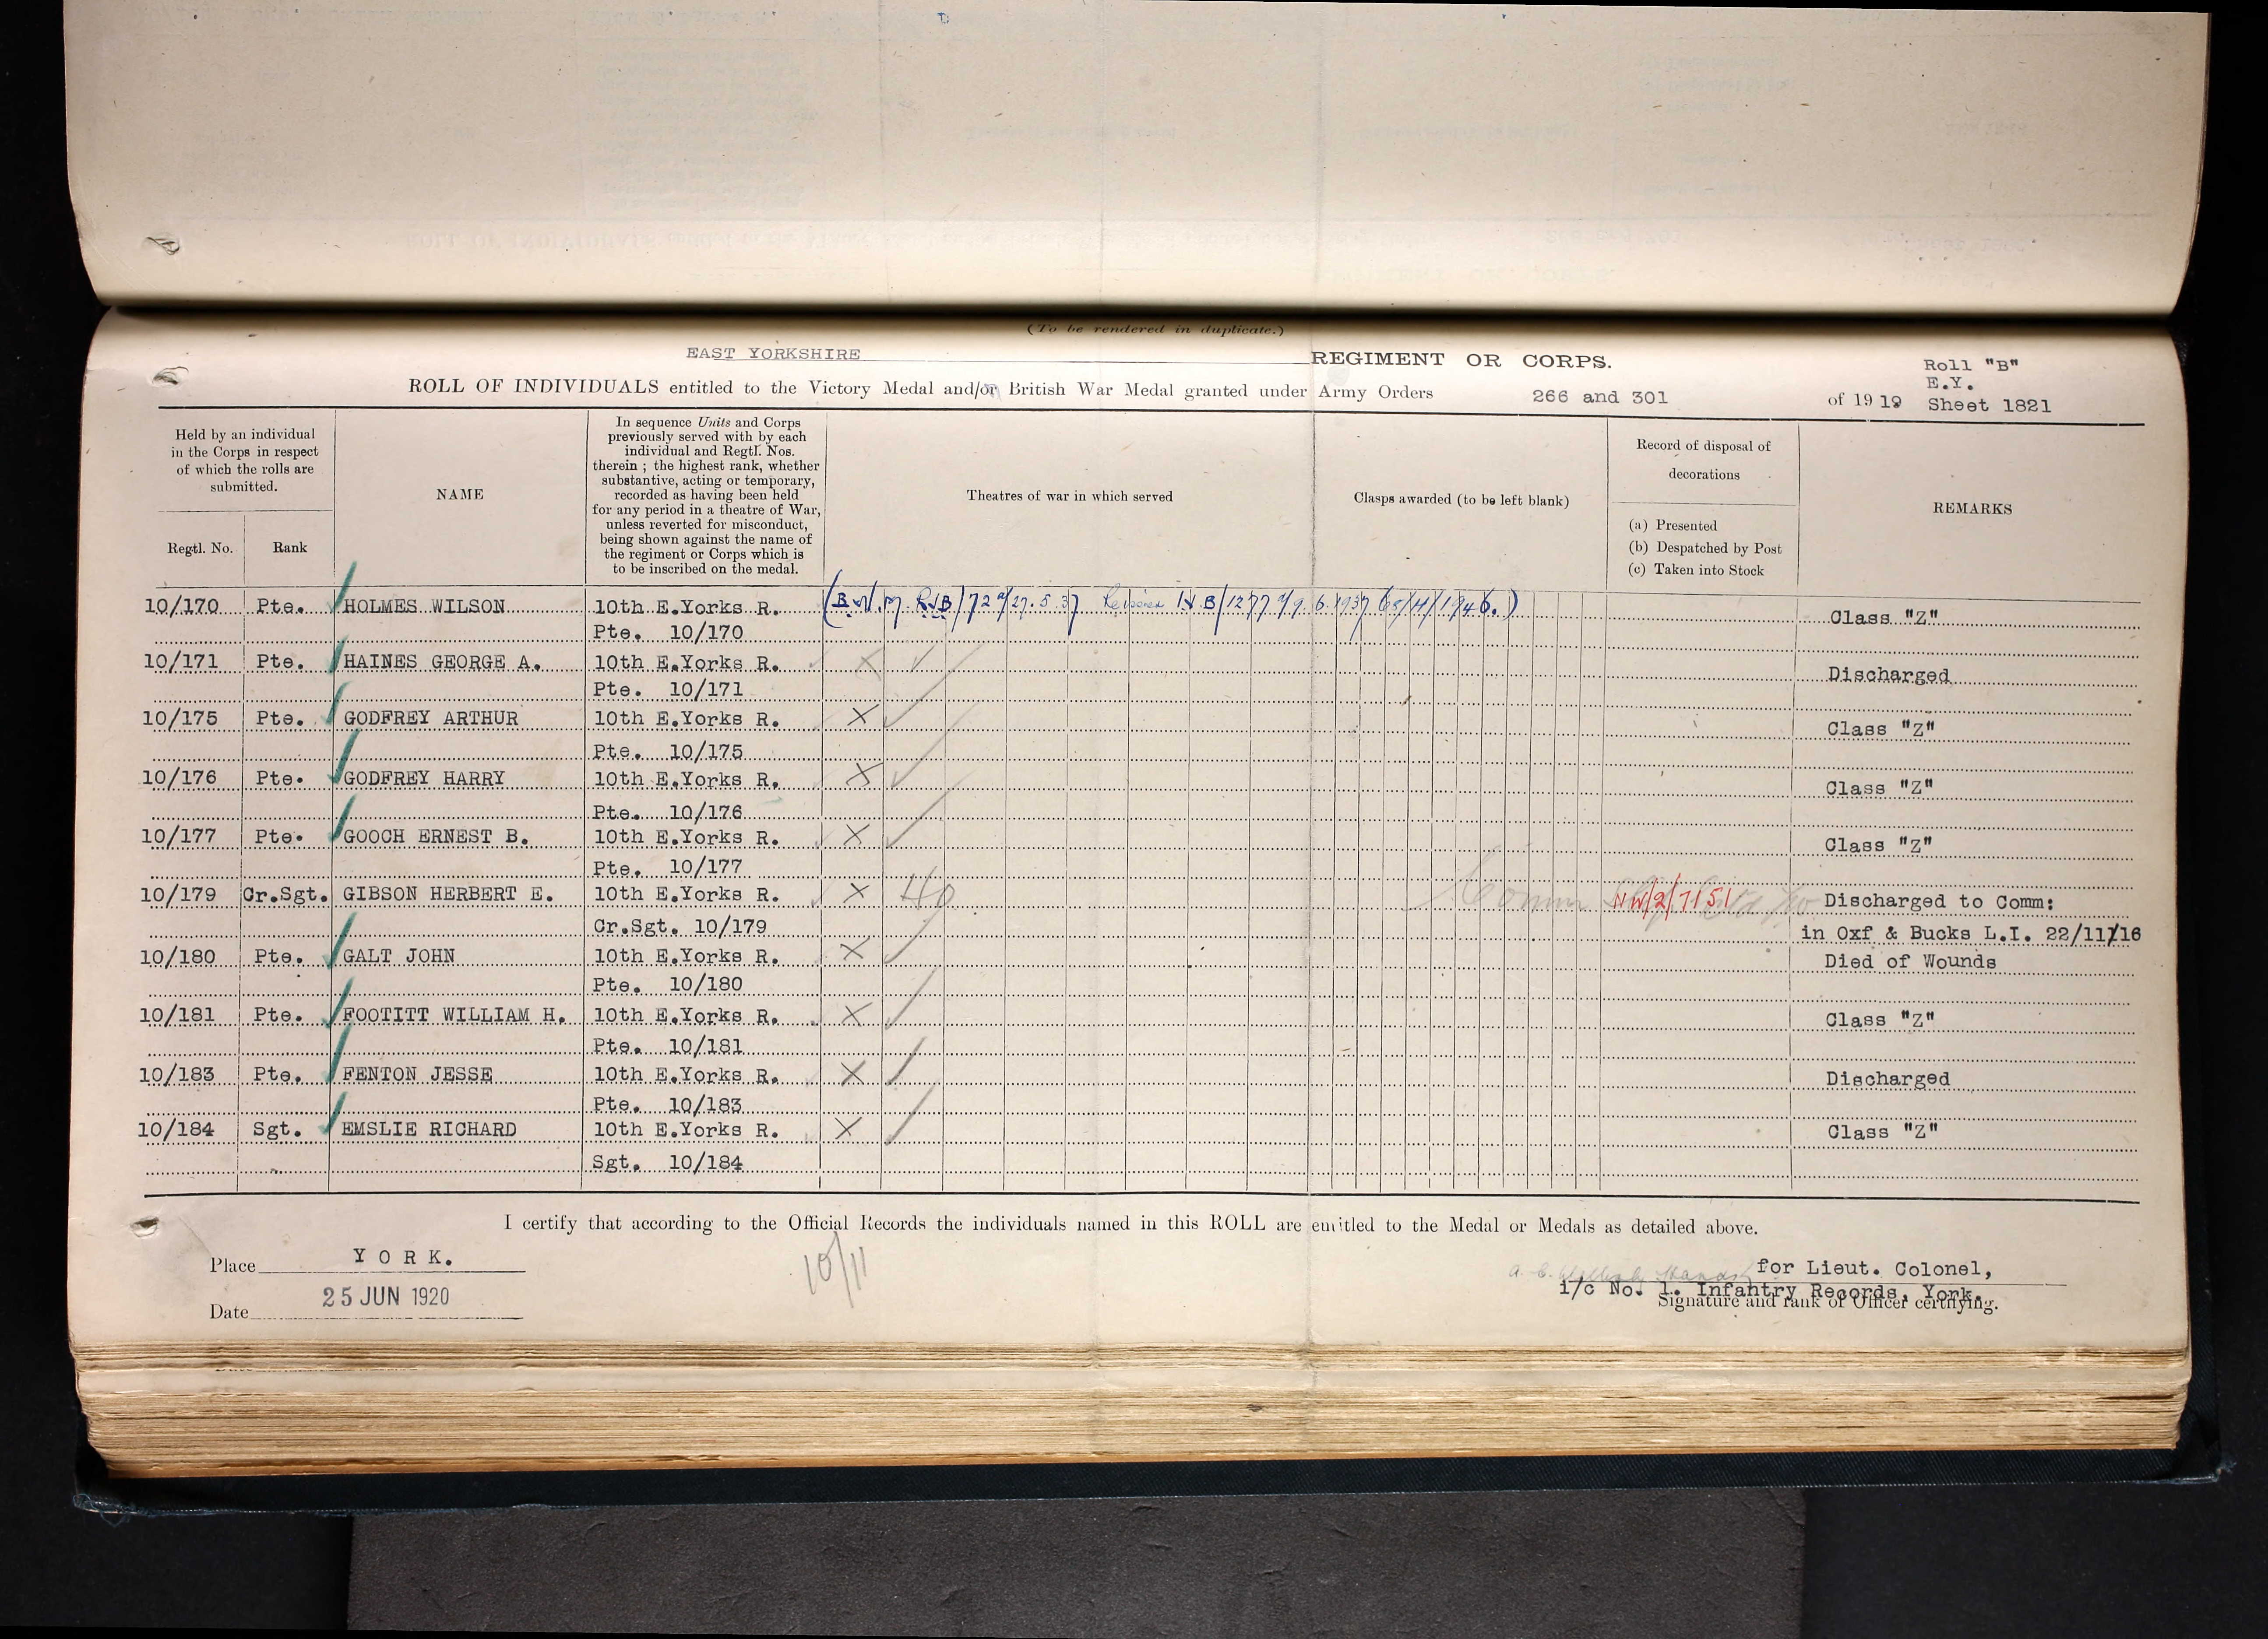 (To be rendered in duplicate.)
EAST YORKSHIRE REGIMENT OR CORPS.
Roll "B"
E.Y.
ROLL OF INDIVIDUALS entitled to the Victory Medal and/or British War Medal granted under Army Orders 266 and 301 of 1919 Sheet 1821
Held by an individual
in the Corps in respect
of which the rolls are
submitted.
Regtl. No.
Rank
NAME
In sequence Units and Corps
previously served with by each
individual and Regtl. Nos.
therein ; the highest rank, whether
substantive, acting or temporary,
recorded as having been held
for any period in a theatre of War,
unless reverted for misconduct,
being shown against the name of
the regiment or Corps which is
to be inscribed on the medal.
Theatres of war in which served
Clasps awarded (to be left blank)
Record of disposal of
decorations
(a) Presented
(b) Despatched by Post
(c) Taken into Stock
REMARKS
10/170 Pte. HOLMES WILSON 10th E.Yorks R. Class "Z"
Pte. 10/170
10/171 Pte. HAINES GEORGE A. 10th E.Yorks R. Discharged
Pte. 10/171
10/175 Pte. GODFREY ARTHUR 10th E.Yorks R. X Class "Z"
Pte. 10/175
10/176 Pte. GODFREY HARRY 10th E.Yorks R. X Class "Z"
Pte. 10/176
10/177 Pte. GOOCH ERNEST B. 10th E.Yorks R. X Class "Z"
Pte. 10/177
10/179 Cr.Sgt. GIBSON HERBERT E. 10th E.Yorks R. X Comm NW/2/7151 Discharged to Comm:
Cr.Sgt. 10/179 in Oxf & Bucks L.I. 22/11/16
10/180 Pte. GALT JOHN 10th E.Yorks R. X Died of Wounds
Pte. 10/180
10/181 Pte. FOOTITT WILLIAM H. 10th E.Yorks R. X Class "Z"
Pte. 10/181
10/183 Pte. FENTON JESSE 10th E.Yorks R. X Discharged
Pte. 10/183
10/184 Sgt. EMSLIE RICHARD 10th E.Yorks R. X Class "Z"
Sgt. 10/184
I certify that according to the Official Records the individuals named in this ROLL are entitled to the Medal or Medals as detailed above.
Place YORK.
Date 25 JUN 1920
10/11
for Lieut. Colonel,
i/c No. 1. Infantry Records, York.
Signature and rank of Officer certifying.